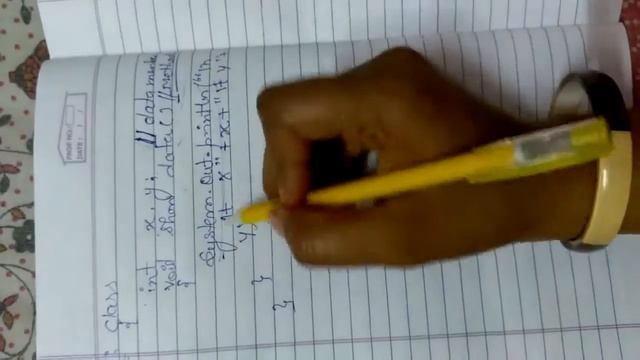 PAGE NO.:
DATE: / /
class
{
int x, y; // data
void show data() //
{
System.out.println("\n
\t x" + x + "\t y"
y);
}
}